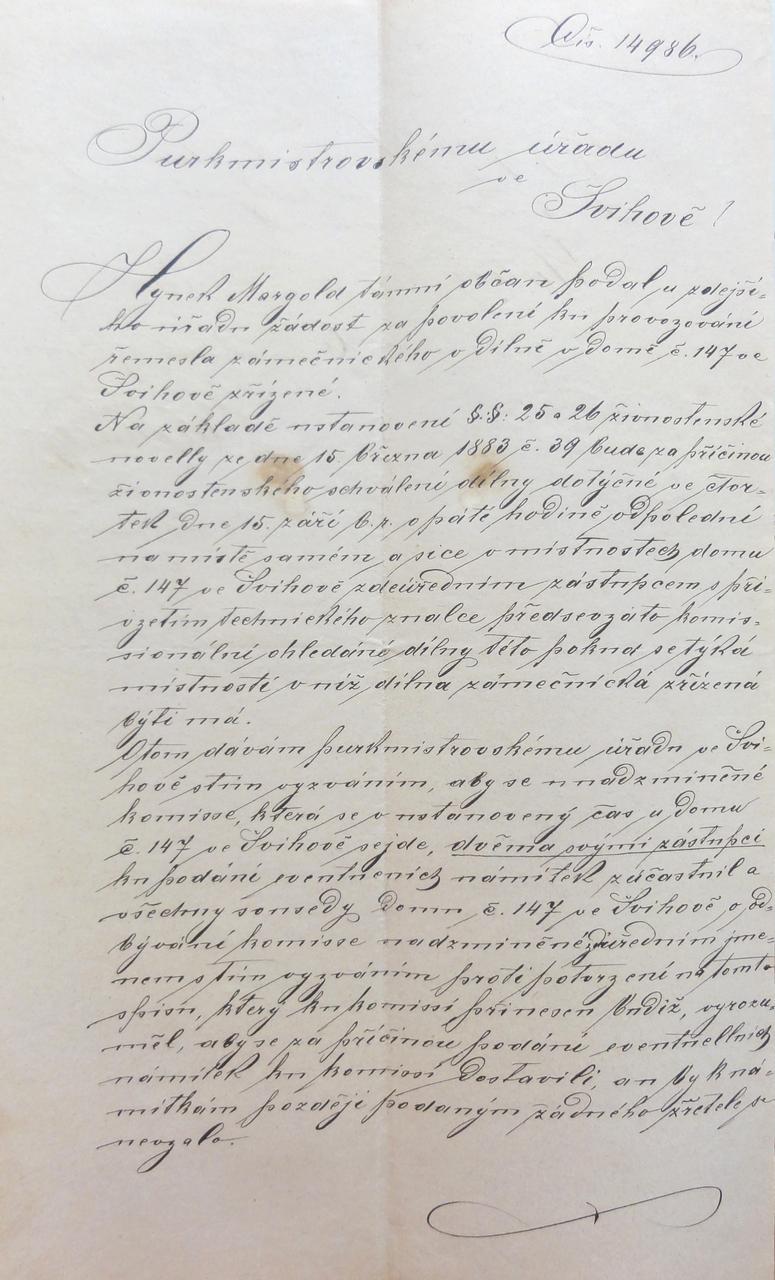 Čís. 14986.
Purkmistrovskému úřadu
ve
Švihově!
Hynek Margold támní občan podal u zdejší-
ho úřadu žádost za povolení ku provozování
řemesla zámečnického v dílně v domě č. 147 ve
Švihově zřízené.
Na základě ustanovení §.§: 25 a 26 živnostenské
novelly ze dne 15. března 1883 č. 39 bude za příčinou
živnostenského schválení dílny dotýčné ve čtvr-
tek dne 15. září b.r. o páté hodině odpolední
na místě samém a sice v místnostech domu
č. 147 ve Švihově zdeúředním zástupcem s při-
vzetím technického znalce předsevzato komis-
sionální ohledání dílny této pokud se týká
místností v níž dílna zámečnická zřízená
býti má.
O tom dávám purkmistrovskému úřadu ve Švi-
hově s tím vyzváním, aby se u nadzmíněné
komisse, která se v ustanovený čas u domu
č. 147 ve Švihově sejde, dvěma svými zástupci
ku podání eventueních námitek zúčastnil a
všechny sousedy domu č. 147 ve Švihově, o od-
bývání komisse nadzmíněné zdeúředním jmé-
nem s tím vyzváním proti potvrzení na tomto
spisu, který ku komissi přinesen budiž, vyrozu-
měl, aby se za příčinou podání eventuelních
námitek ku komissi dostavili, an by k ná-
mitkám později podaným žádného zřetele se
nevzalo.